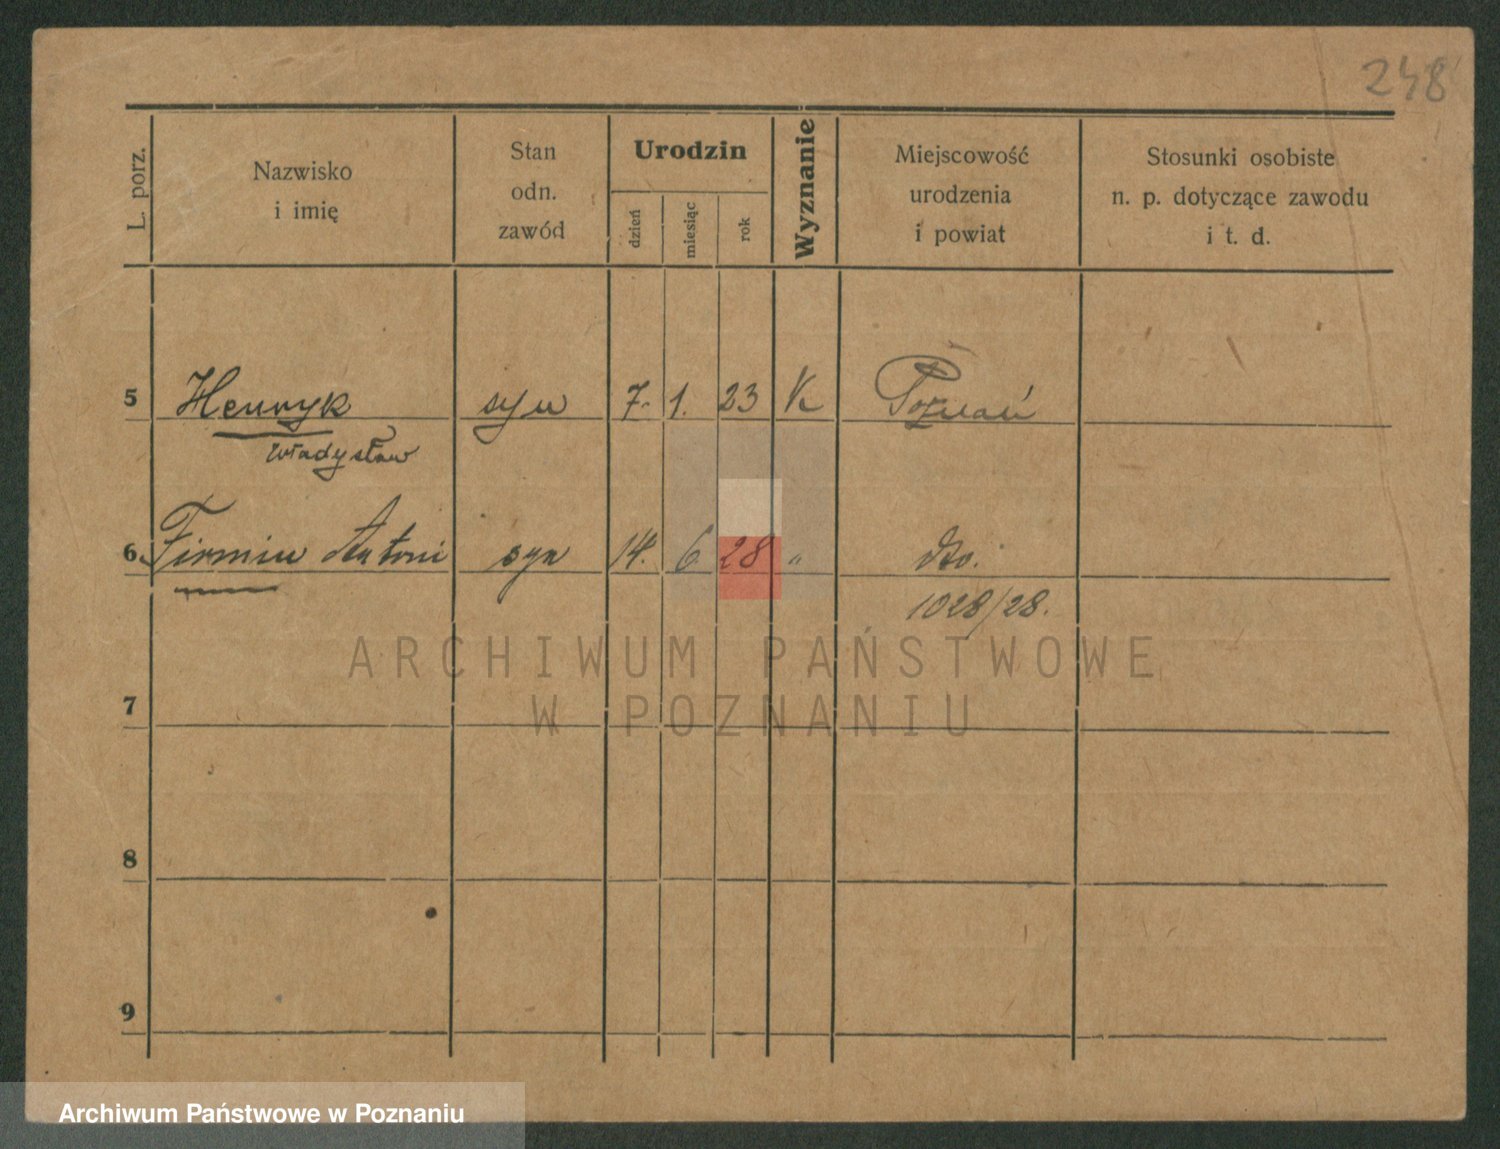 248
L. porz.
Nazwisko
i imię
Stan
odn.
zawód
Urodzin
dzień
miesiąc
rok
Wyznanie
Miejscowość
urodzenia
i powiat
Stosunki osobiste
n. p. dotyczące zawodu
i t. d.
5 Henryk syn 7. 1. 23 K Poznań
Władysław
6 Firmin Antoni syn 14. 6 28 " dto.
1028/28.
ARCHIWUM PAŃSTWOWE
W POZNANIU
7
8
9
Archiwum Państwowe w Poznaniu